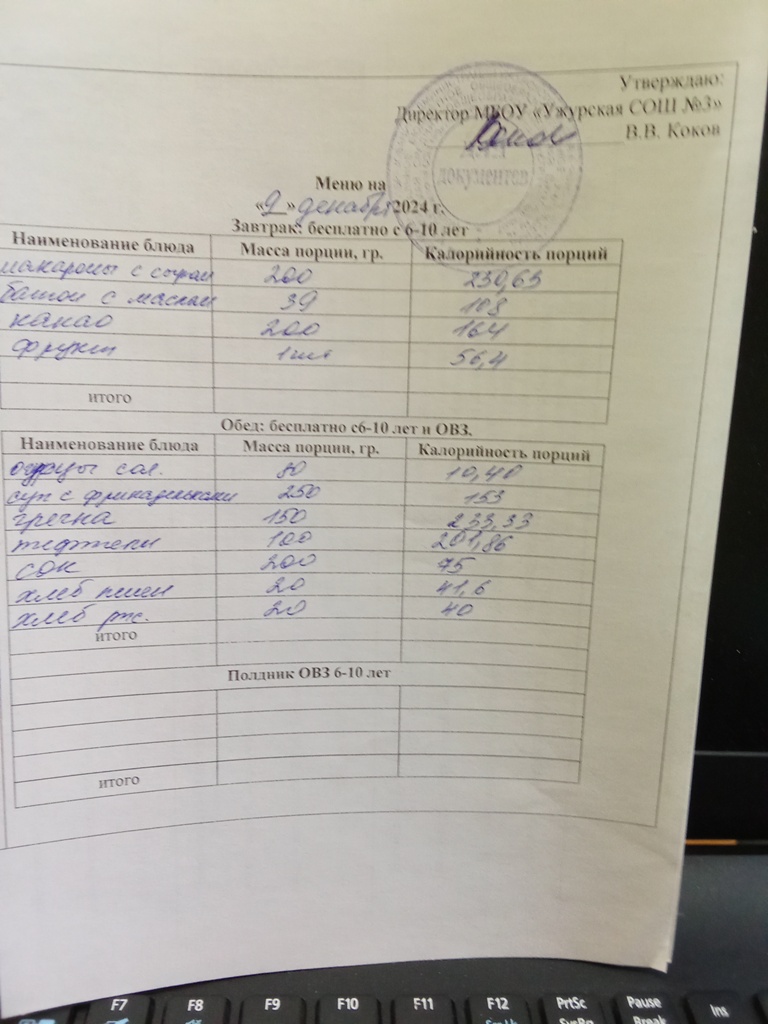 Утверждаю:
Директор МКОУ «Ужурская СОШ №3»
В.В. Коков
Для документов
Меню на
«2» декабря 2024 г.
Завтрак: бесплатно с 6-10 лет
Наименование блюда Масса порции, гр. Калорийность порций
макароны с сыром 200 230,63
батон с маслом 39 108
какао 200 164
фрукт 1 шт 56,4
итого
Обед: бесплатно с6-10 лет и ОВЗ.
Наименование блюда Масса порции, гр. Калорийность порций
огурцы сол. 80 10,40
суп с фрикадельками 250 153
гречка 150 233,33
тефтели 100 201,86
сок 200 75
хлеб пшен 20 41,6
хлеб рж. 20 40
итого
Полдник ОВЗ 6-10 лет
итого
F7 F8 F9 F10 F11 F12 PrtSc Pause Ins
SysRq Break